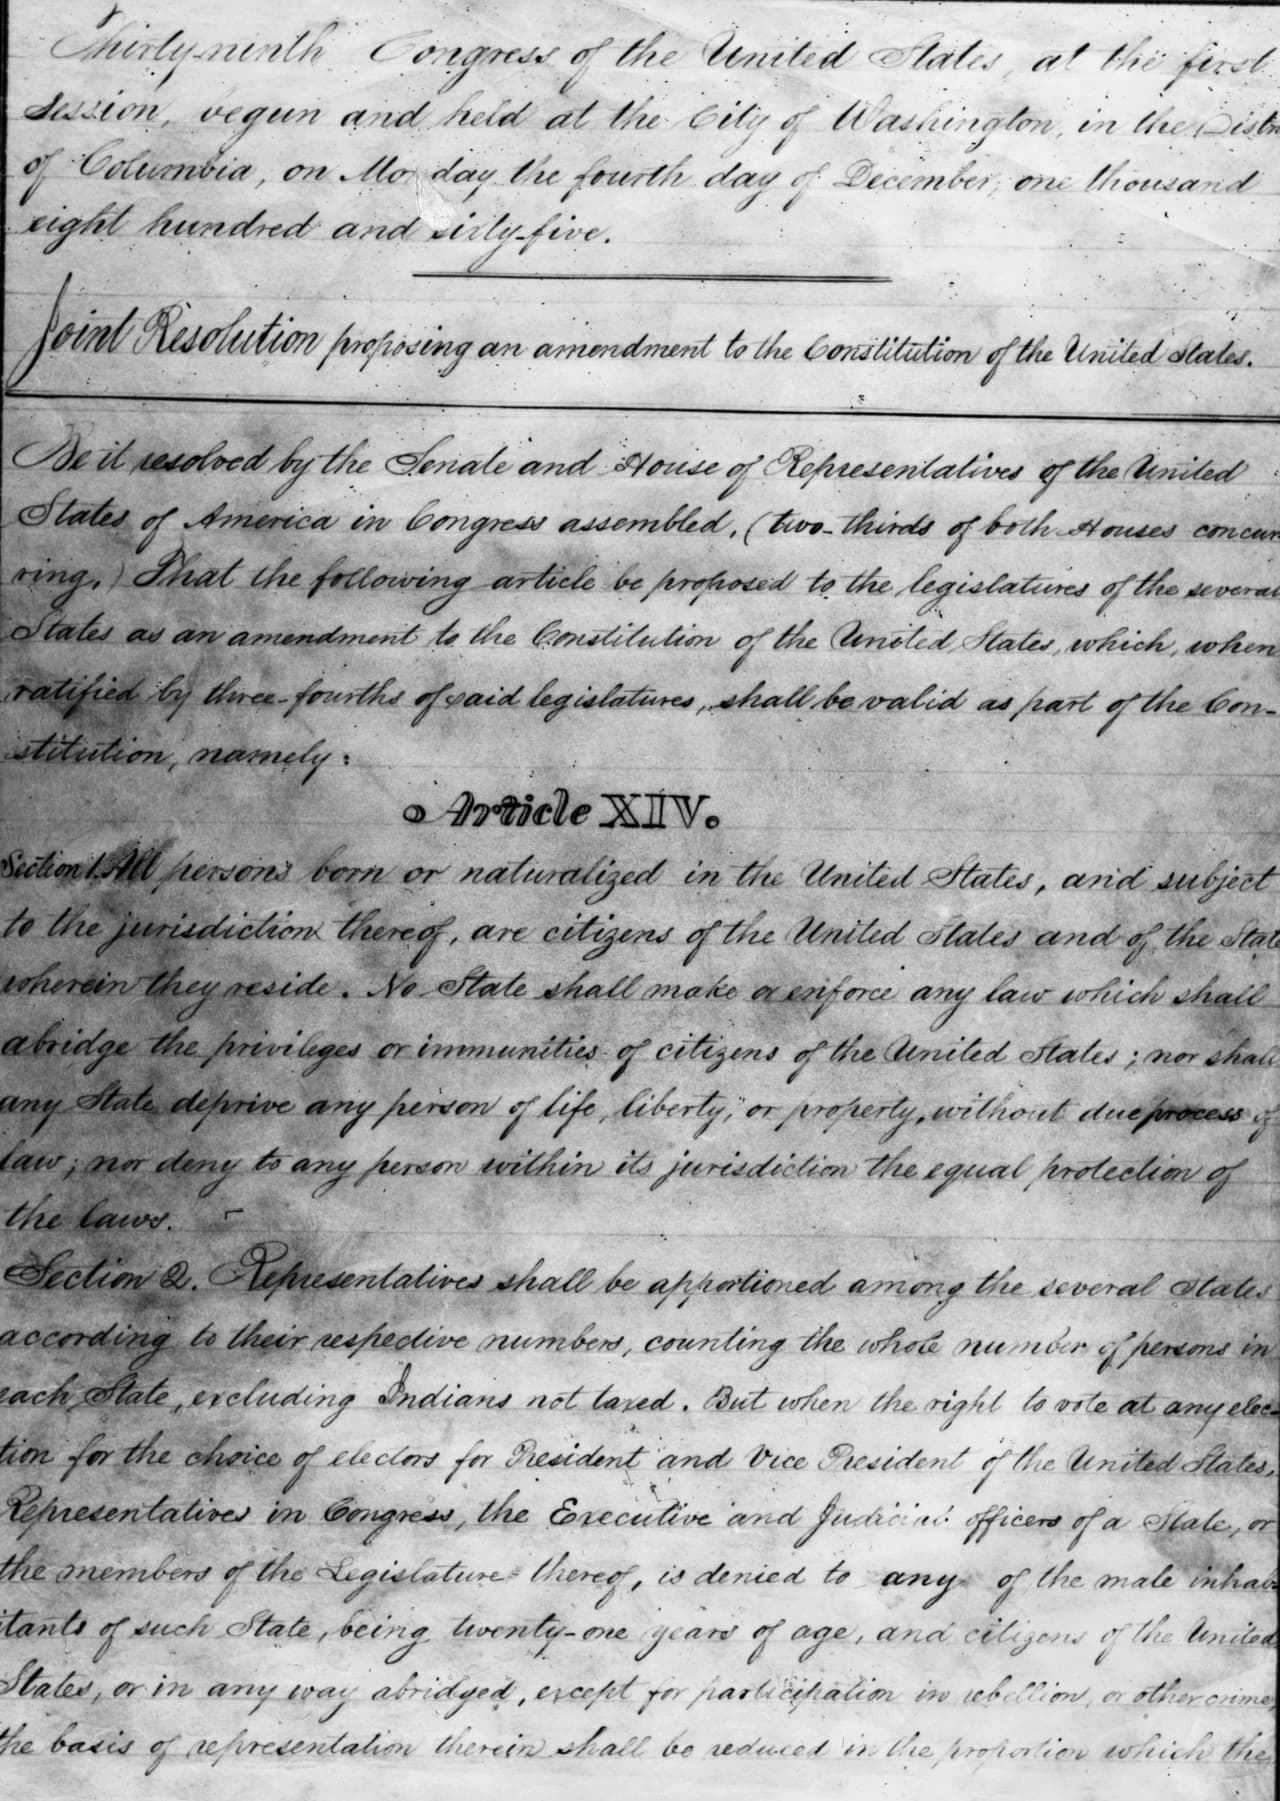 Thirty-ninth Congress of the United States, at the first
Session, begun and held at the City of Washington, in the Distri
of Columbia, on Mo day the fourth day of December, one thousand
eight hundred and sixty-five.
Joint Resolution proposing an amendment to the Constitution of the United States.
Be it resolved by the Senate and House of Representatives of the United
States of America in Congress assembled, (two-thirds of both Houses concur
ring,) That the following article be proposed to the legislatures of the several
States as an amendment to the Constitution of the United States, which, when
ratified by three-fourths of said legislatures, shall be valid as part of the Con-
stitution, namely:
Article XIV.
Section 1. All persons born or naturalized in the United States, and subject
to the jurisdiction thereof, are citizens of the United States and of the State
wherein they reside. No State shall make or enforce any law which shall
abridge the privileges or immunities of citizens of the United States; nor shall
any State deprive any person of life, liberty, or property, without due process of
law; nor deny to any person within its jurisdiction the equal protection of
the laws.
Section 2. Representatives shall be apportioned among the several States
according to their respective numbers, counting the whole number of persons in
each State, excluding Indians not taxed. But when the right to vote at any elec-
tion for the choice of electors for President and Vice President of the United States,
Representatives in Congress, the Executive and Judicial officers of a State, or
the members of the Legislature thereof, is denied to any of the male inhab-
itants of such State, being twenty-one years of age, and citizens of the United
States, or in any way abridged, except for participation in rebellion, or other crime,
the basis of representation therein shall be reduced in the proportion which the